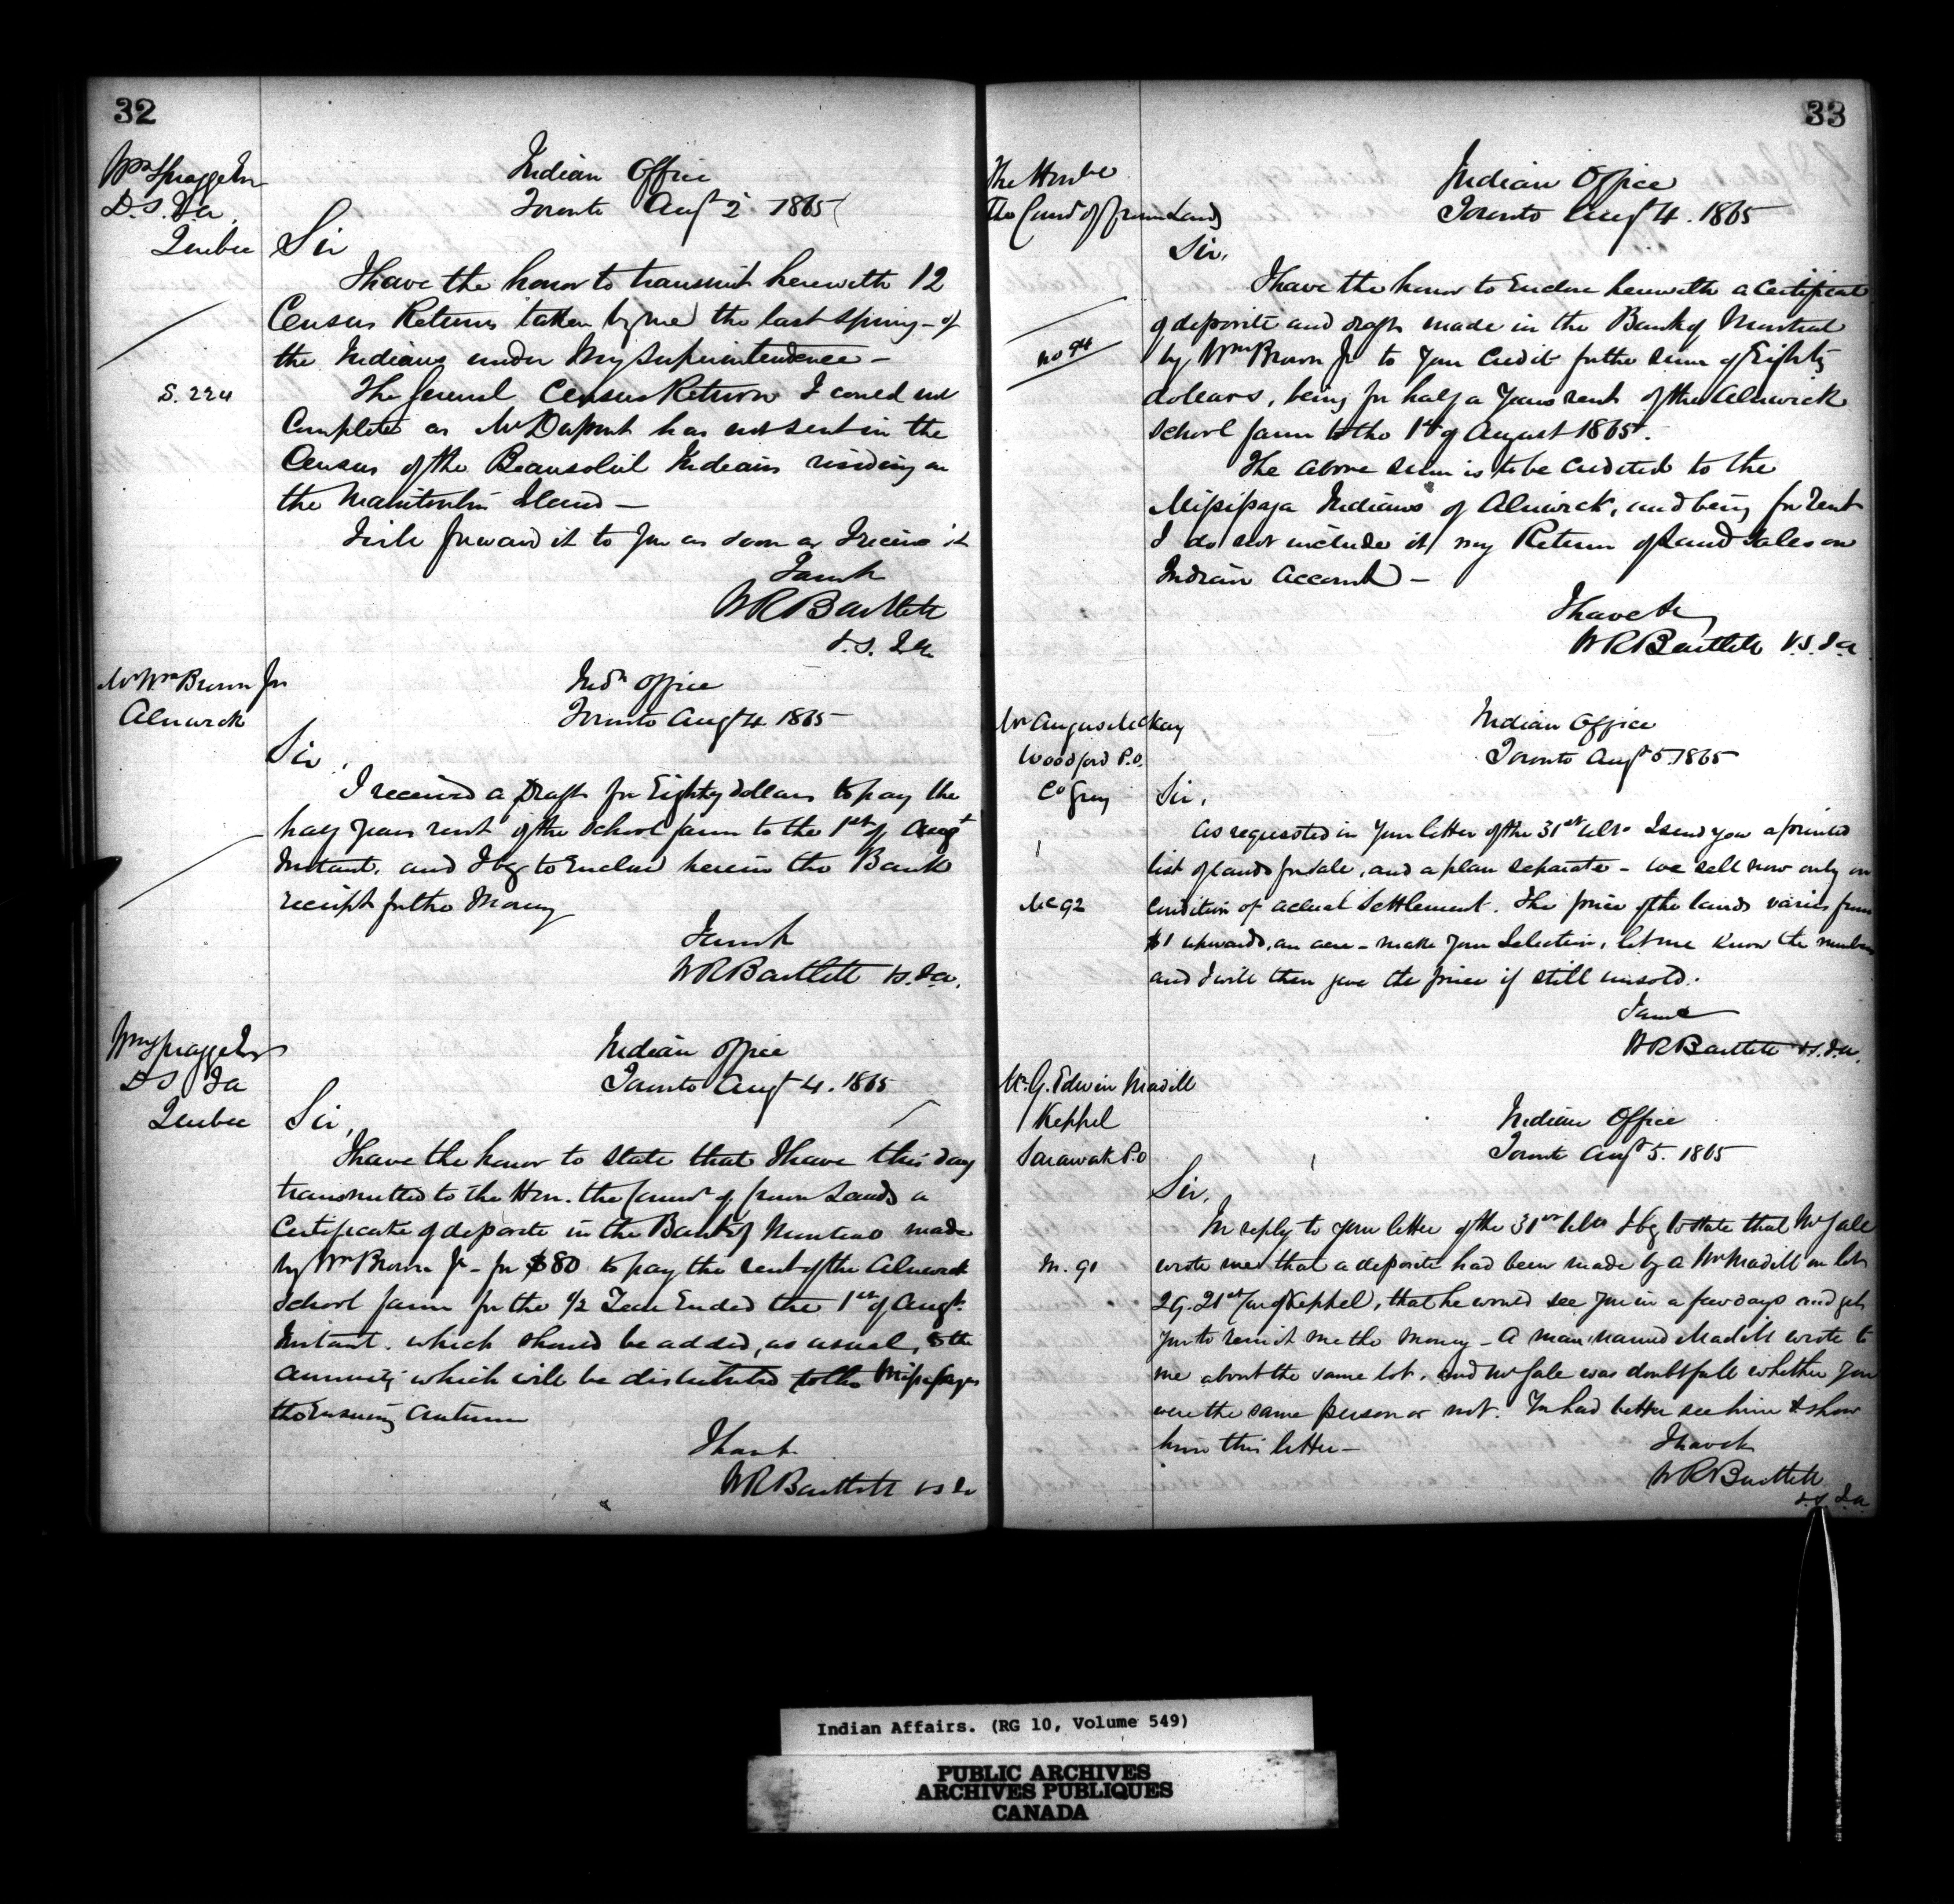 32
Wm Spragge Esr
D.S.I.a.
Quebec
Indian Office
Toronto Augt 2 1865
Sir
I have the honor to transmit herewith 12
Census Returns taken by me the last spring - of
the Indians under my superintendence -
S. 224
The general Census Return I could not
Complete as Mr Dupont has not sent in the
Census of the Beausoleil Indians residing on
the Manitoulin Island -
I will forward it to you as soon as I receive it
I am &c
WRBartlett
V.S. I.a.
Mr Wm Brown Jr
Alnwick
Indn Office
Toronto Augt 4 1865
Sir,
I received a Draft for Eighty dollars to pay the
half years rent of the School farm to the 1st of Augt
Instant, and I beg to Enclose herein the Bank
receipt for the Money
I am &c
WRBartlett V.S.I.a.
Wm Spragge Esr
D S Ia
Quebec
Indian Office
Toronto Augt 4. 1865
Sir,
I have the honor to state that I have this day
transmitted to the Hon. the Commr of Crown Lands a
Certificate of deposite in the Bank of Montreal made
by Wm Brown Jr - for $80 to pay the rent of the Alnwick
School farm for the 1/2 Year Ended the 1st of Augt
Instant. which should be added, as usual, to the
annuity which will be distributed to the Missisagas
the Ensuing Autumn
I have &c
WRBartlett V S Ia
33
The Honble
The Commr of Crown Lands
Indian Office
Toronto Augt 4. 1865
Sir,
I have the honor to Enclose herewith a Certificate
no 94
of deposite and draft made in the Bank of Montreal
by Wm Brown Jr to your Credit for the sum of Eighty
dollars, being for half a Years rent of the Alnwick
School farm to the 1st of August 1865.
The above sum is to be Credited to the
Misisisaga Indians of Alnwick, and being for rent
I do not include it my Return of Land Sales on
Indian Account -
I have &c
WRBartlett V.S.I.a
Mr Angus McKay
Woodford P.O.
Co Grey
Indian Office
Toronto Augt 5. 1865
Sir,
As requested in your letter of the 31st ulto I send you a printed
list of lands for sale, and a plan separate - we sell now only on
Mc 92
Condition of actual Settlement. The price of the lands varies from
$1 upwards, an acre - make your Selection, let me know the numbers
and I will then give the price if still unsold.
I am &c
WRBartlett V.S.I.a.
Mr. G. Edwin Madill
Keppel
Sarawak P.O
Indian Office
Toronto Augt 5. 1865
Sir,
In reply to your letter of the 31st ulto I beg to state that Mr Gale
M. 91
wrote me that a deposite had been made by a Mr Madill on lot
29. 21st Con of Keppel, that he would see you in a few days and get
you to remit me the Money - A man named Madill wrote to
me about the same lot, and Mr Gale was doubtfull whether you
were the same person or not. You had better see him & show
him this letter -
I have &c
WRBartlett
V.S. I.a.
Indian Affairs. (RG 10, Volume 549)
PUBLIC ARCHIVES
ARCHIVES PUBLIQUES
CANADA